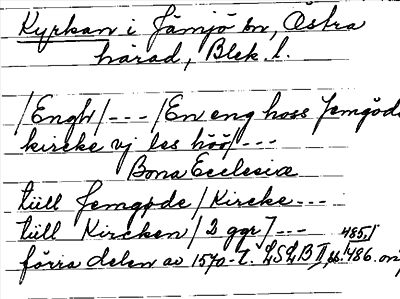 Kyrkan i Jämjö sn, Östra
härad, Blek. l.
/Engh/ --- /En eng hoss Jemgöde
kircke vj les höö/ ---
Bona Ecclesiæ
tiill Jemgøde /Kircke ---
tiill Kircken / 2 ggr7 ---
förra delen av 1570-t. LSLB II, bl. 485/ 486.